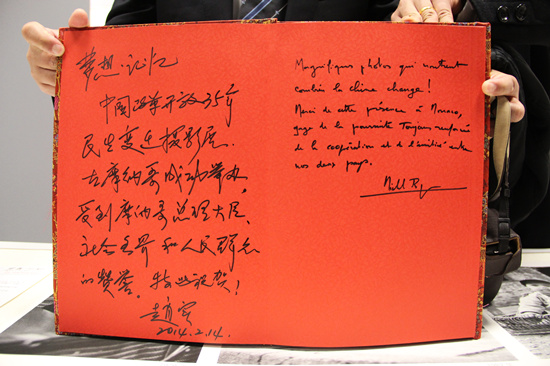 梦想·记忆
中国改革开放35周年
民生变迁摄影展.
在摩纳哥成功举办,
受到摩纳哥总理大臣、
社会各界和人民群众
的赞誉。特此祝贺!
赵实
2014.2.14.
Magnifiques photos qui montrent
combien la Chine change !
Merci de cette présence à Monaco,
gage de la poursuite toujours renforcée
de la coopération et de l'amitié entre
nos deux pays.